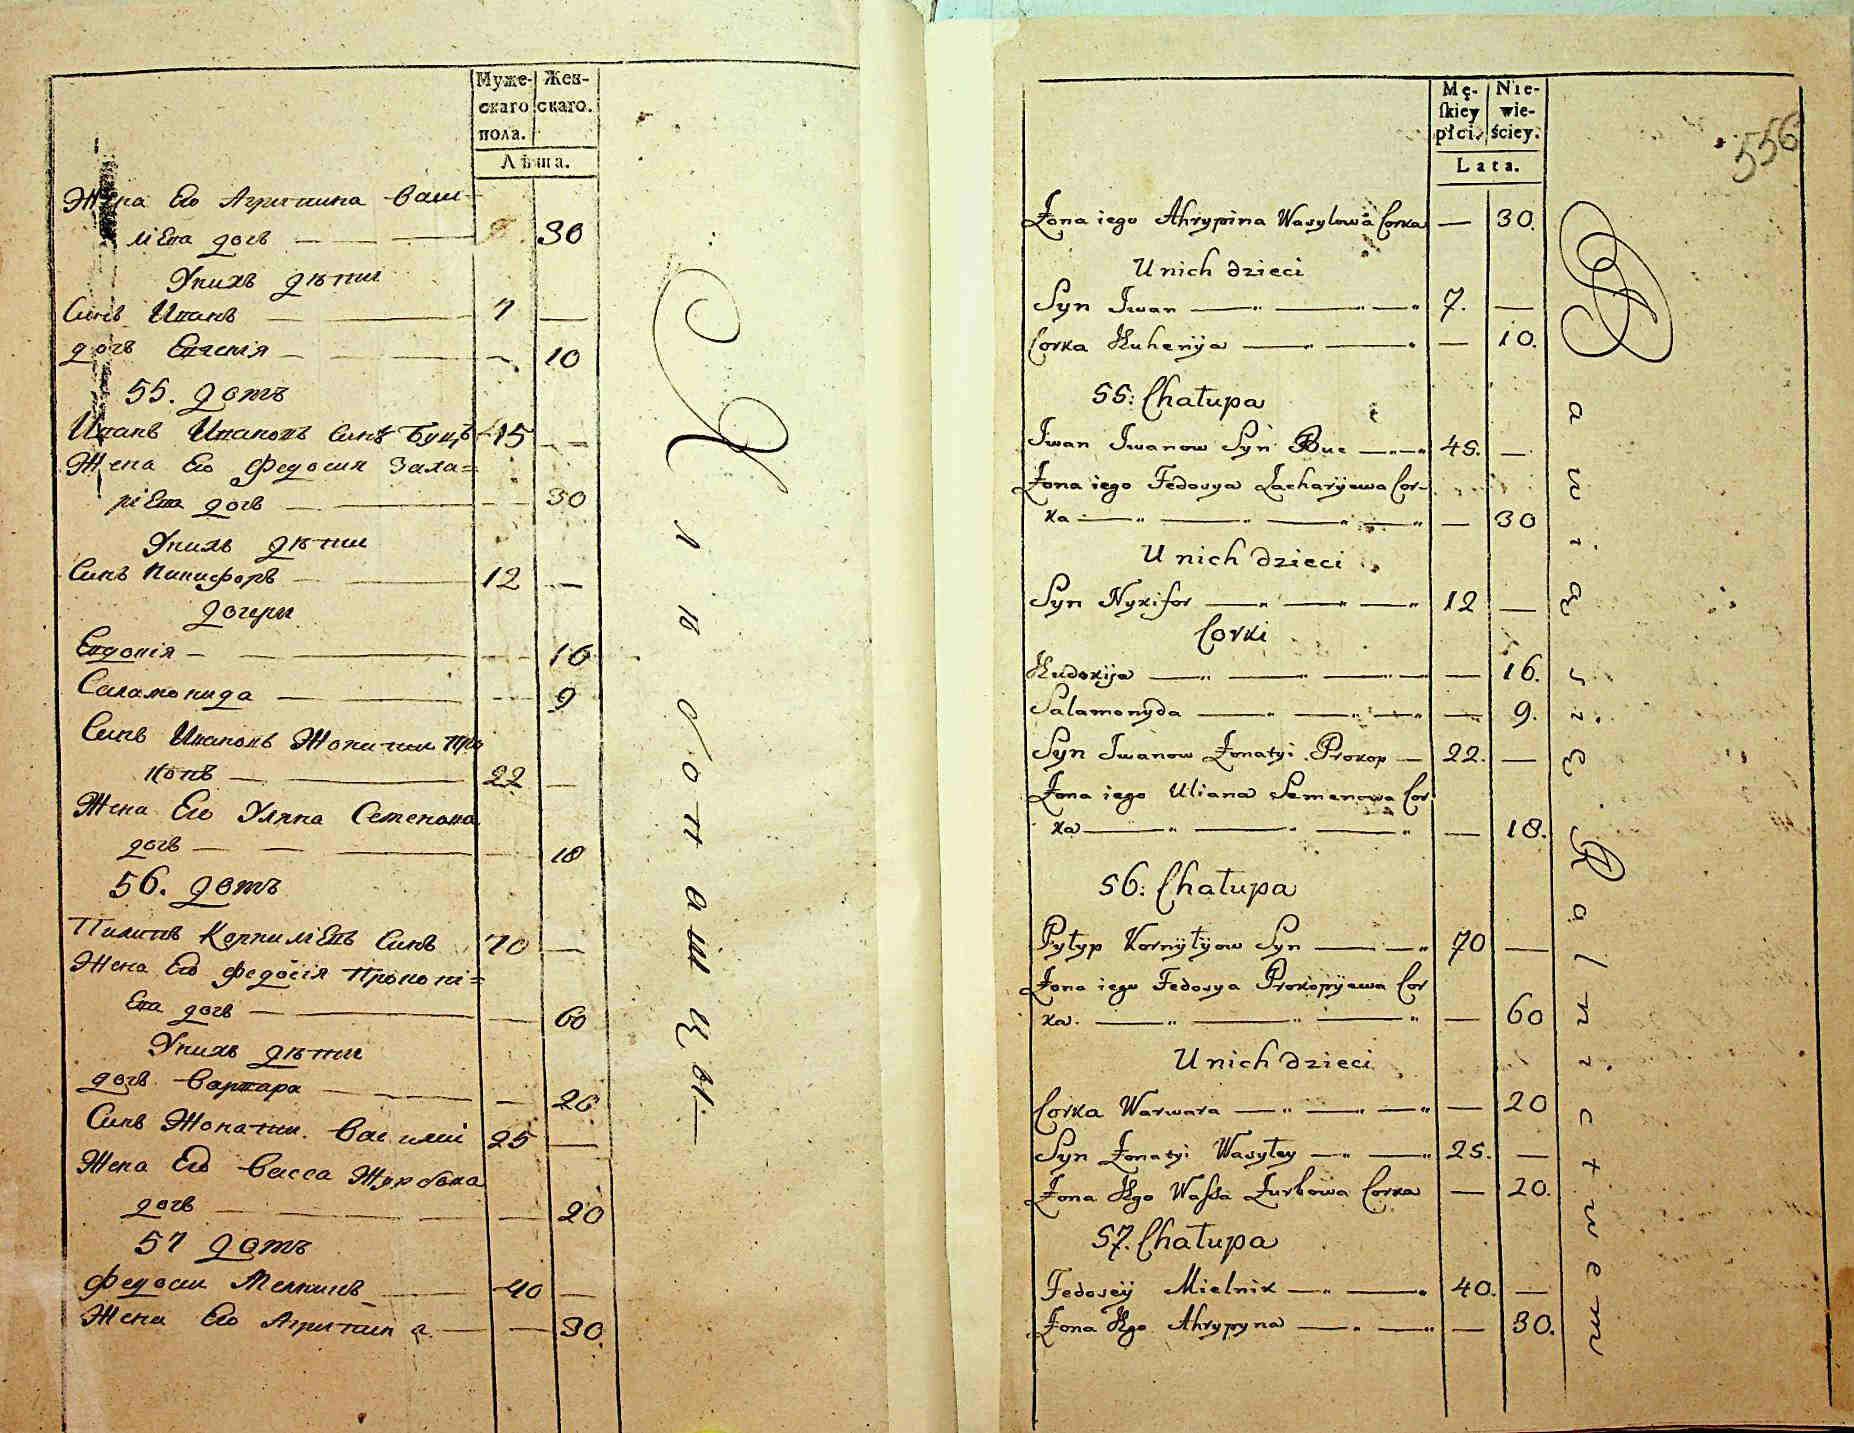 Муже-
скаго
пола.
Жен-
скаго.
Лѣта.
Жена Его Агрипина Васи-
лiева дочь — — — 30
Унихъ дѣти
Синъ Иванъ — — 7 —
дочь Евгенiя — — — 10
55. домъ
Иванъ Ивановъ Синъ Буцъ 45 — —
Жена Его Федосия Заха=
рiева дочь — — — 30
Унихъ дѣти
Синъ Никифоръ — — 12 —
дочери
Евдокiя — — — — 16
Саламонида — — — 9
Синъ Ивановъ Жонатии Про
копъ — — 22 —
Жена Его Уляна Семенова
дочь — — — — 18
56. домъ
Пилипъ Корнилiевъ Синъ 70 —
Жена Его Федосiя Прокопi=
Ева дочь — — — 60
Унихъ дѣти
дочь Варвара — — — 20
Синъ Жонатии Василiй 25 —
Жена Его Васса Журбова
дочь — — — — 20
57 домъ
Федосии Мелникъ — 40 —
Жена Его Агрипина — — 30
К л ю б о в а ш ц ы —
Mę-
ſkiey
płci.
Nie-
wie-
ściey.
Lata.
556
Żona iego Ahrypina Wasylowa Corka — 30.
U nich dzieci
Syn Iwan — " — — " 7. —
Corka Kuhenija — " — " — 10.
55: Chałupa
Iwan Iwanow Syn Buc — " — " 45. —
Żona iego Fedosya Zacharyewa Cor-
ka — " — " — " — " — 30
U nich dzieci
Syn Nykifor — " — " — " 12 —
Corki
Kudokija — " — " — — " — 16.
Salamonyda — " — " — " — 9.
Syn Iwanow Żonatyi Prokop — 22. —
Żona iego Uliana Semenowa Cor
ka — " — " — " — 18.
56: Chałupa
Pyłyp Kornyłyow Syn — — " 70 —
Żona iego Fedosya Prokopyewa Cor
ka. — " — " — " — 60
U nich dzieci
Corka Warwara — " — " — " — 20
Syn Żonatyi Wasyley — " — " 25. —
Żona Jego Waſsa Żurbowa Corka — 20.
57. Chałupa
Fedosey Mielnik — " — " 40. —
Żona Jego Ahrypyna — " — " — 30.
B a w i ą s i ę R o l n i c t w e m